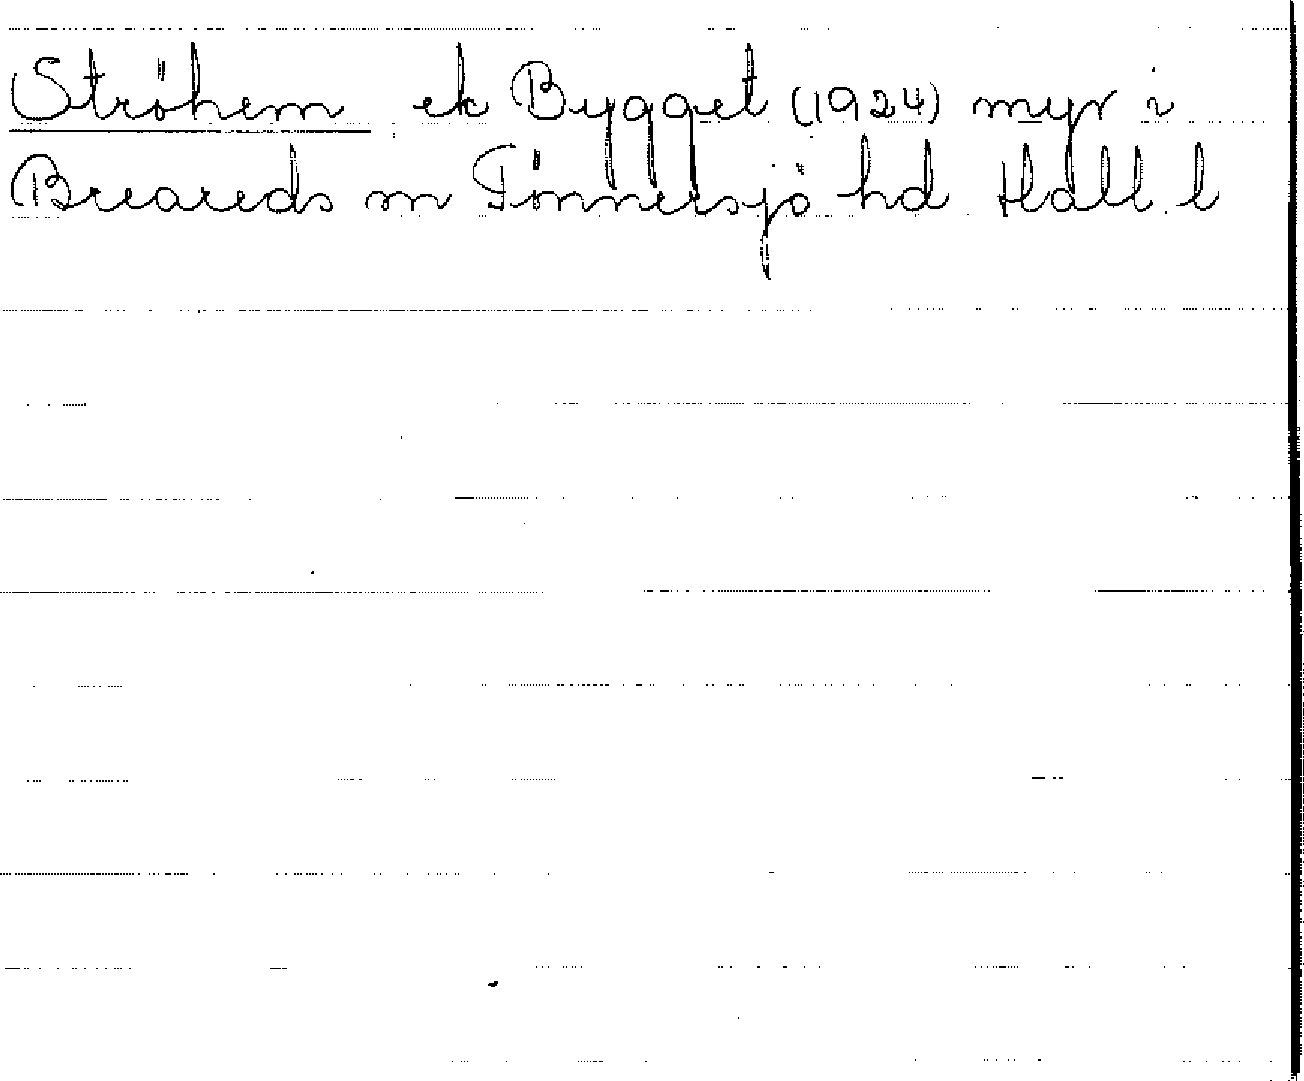 Ströhem ek Bygget (1924) myr i
Breareds sn Tönnersjö hd Hall. l